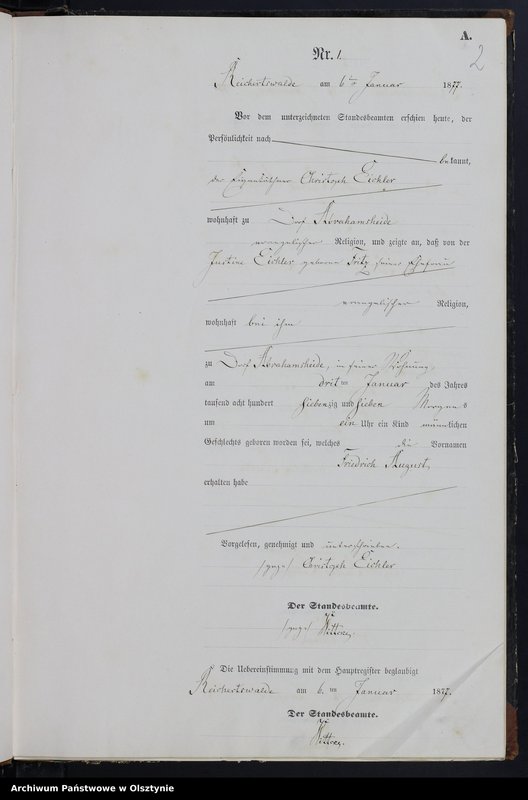 A.
2
Nr. 1.
Reichertswalde am 6ten Januar 1877.
Vor dem unterzeichneten Standesbeamten erschien heute, der
Persönlichkeit nach
bekannt,
der Eigenkäthner Christoph Eichler
wohnhaft zu Dorf Abrahamsheide
evangelischer Religion, und zeigte an, daß von der
Justine Eichler geborene Fritz seiner Ehefrau
evangelischer Religion,
wohnhaft bei ihm
zu Dorf Abrahamsheide, in seiner Wohnung,
am dritten Januar des Jahres
tausend acht hundert siebenzig und sieben Morgens
um ein Uhr ein Kind männlichen
Geschlechts geboren worden sei, welches die Vornamen
Friedrich August,
erhalten habe
Vorgelesen, genehmigt und unterschrieben.
/gez/ Christoph Eichler
Der Standesbeamte.
/gez/
Die Uebereinstimmung mit dem Hauptregister beglaubigt
Reichertswalde am 6. ten Januar 1877.
Der Standesbeamte.
Archiwum Państwowe w Olsztynie